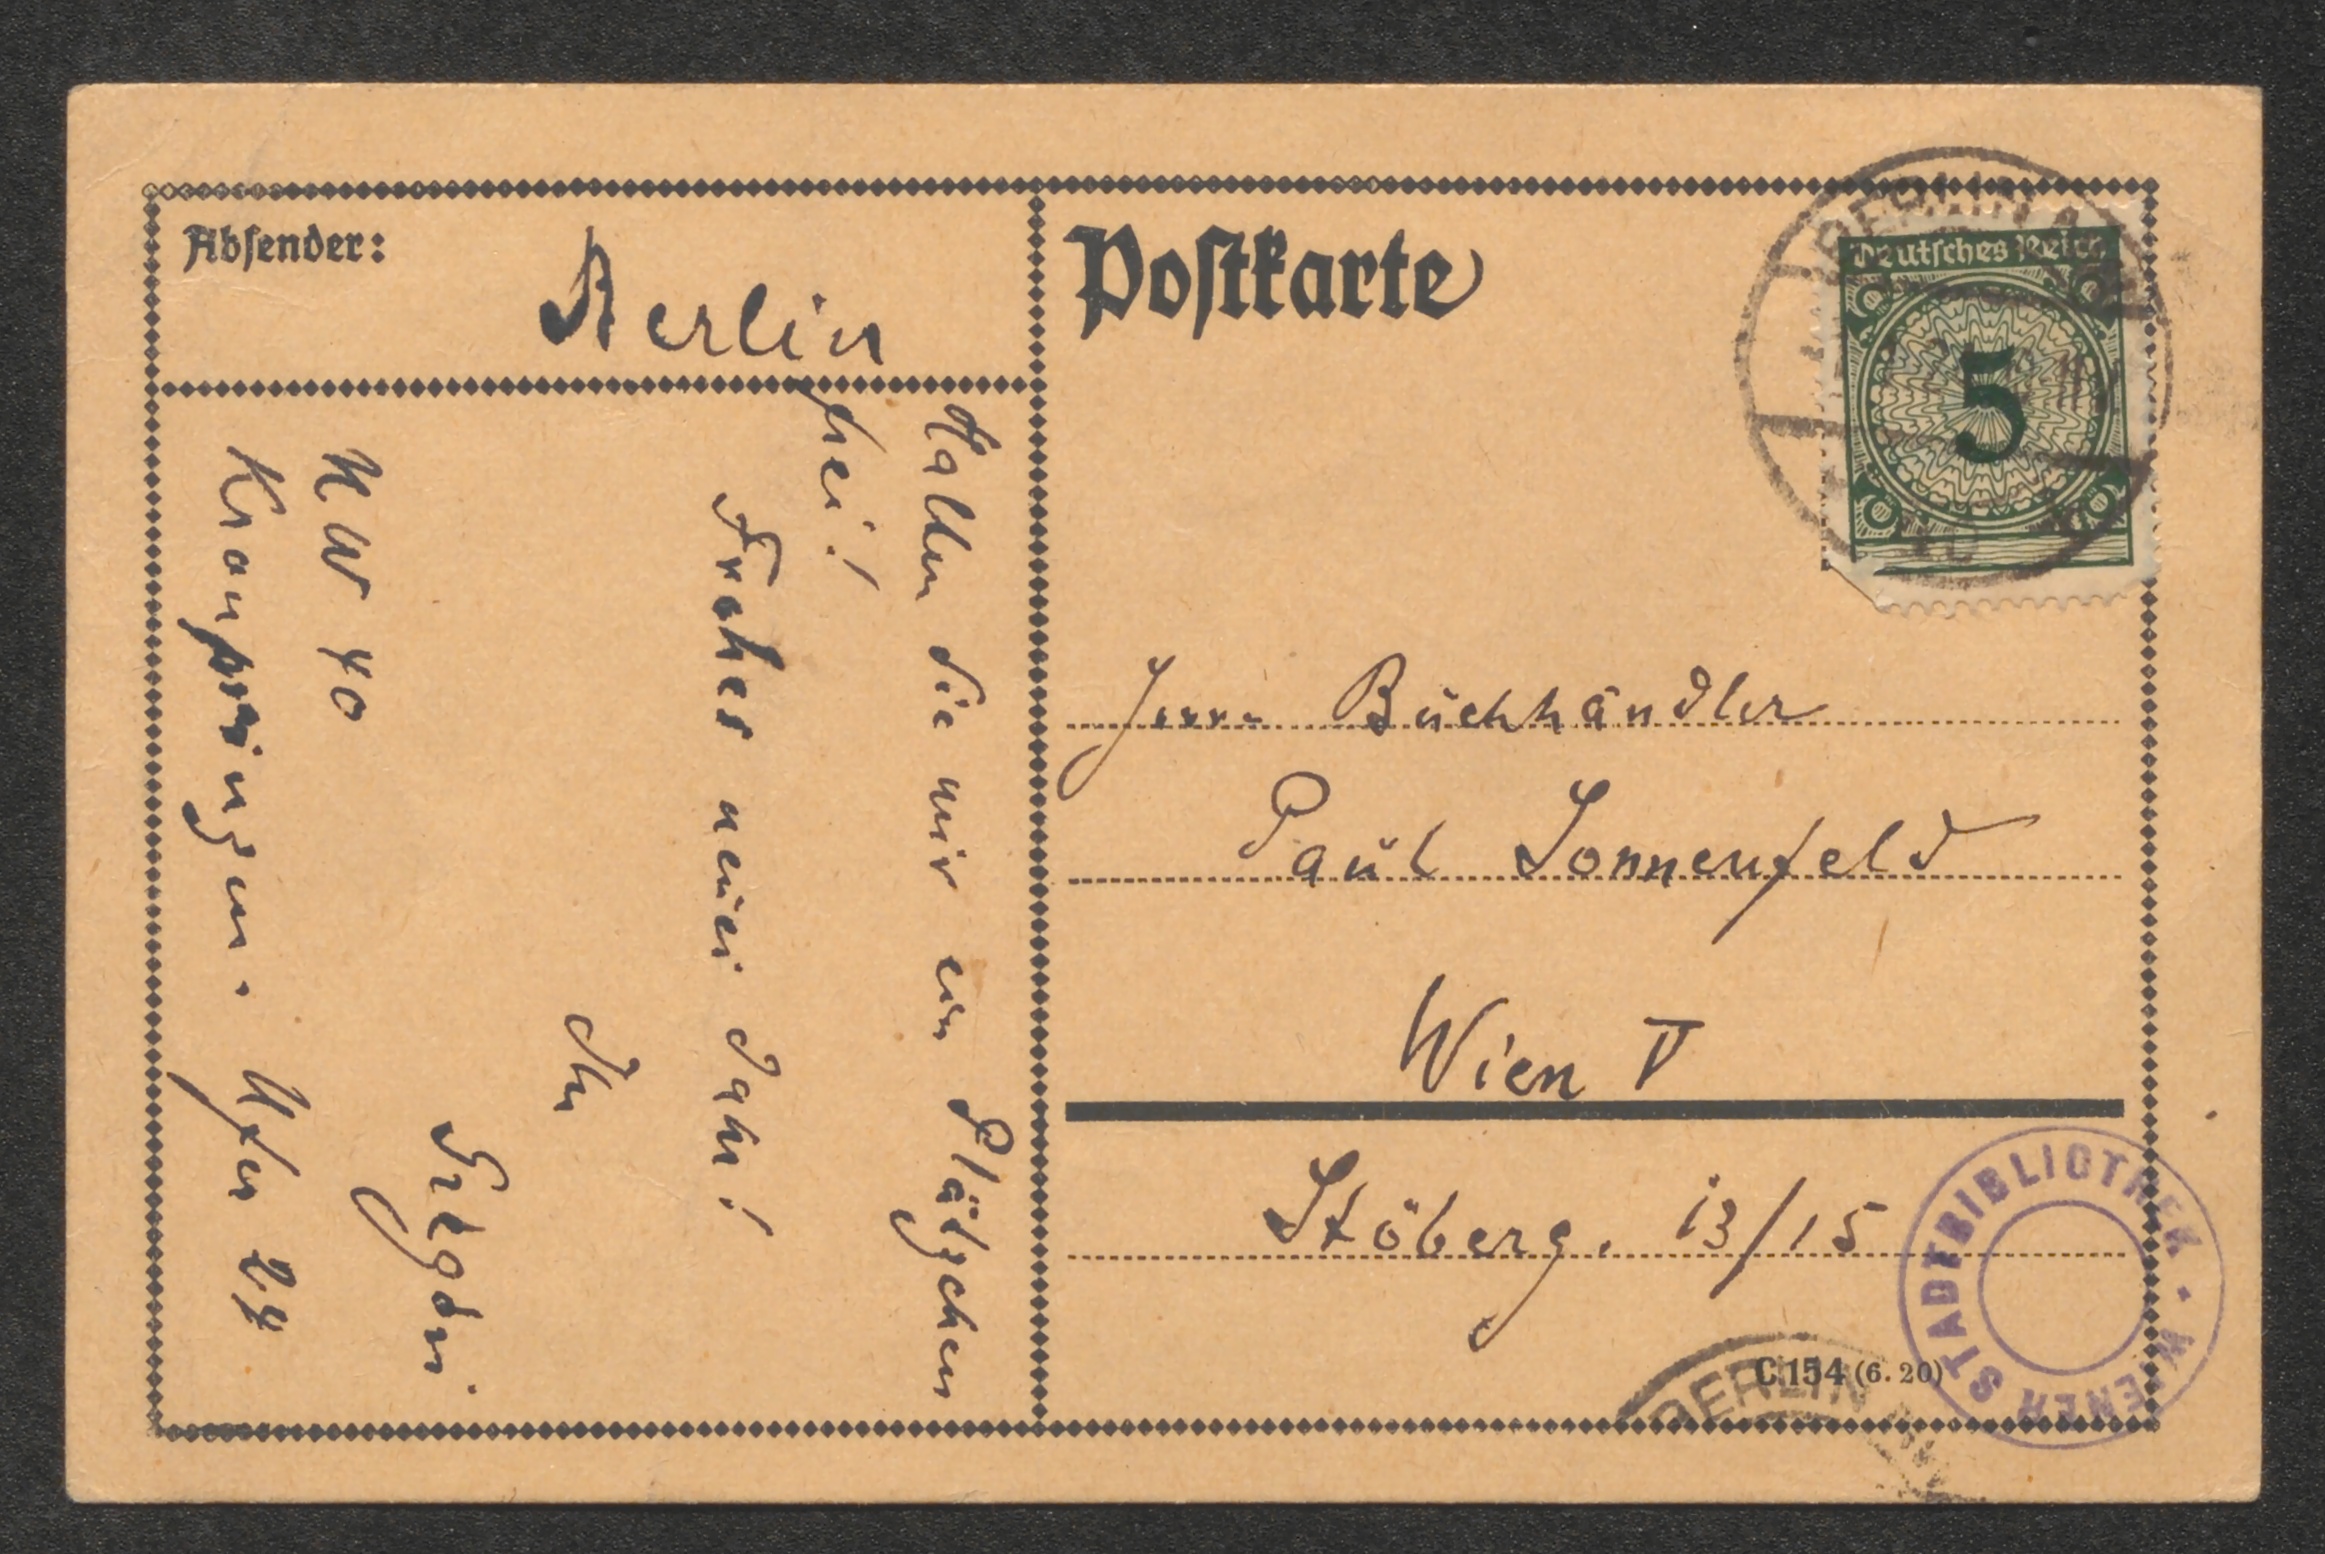 Absender:
Berlin
Halten Sie mir ein Plätzchen
frei!
Frohes neues Jahr!
Ihr
NW 40
Kronprinzen-Ufer 24
Postkarte
BERLIN
Deutsches Reich
5
Herrn Buchhändler
Paul Sonnenfeld
Wien V
Stöberg. 13/15
WIENER STADTBIBLIOTHEK
C154 (6. 20)
BERLIN